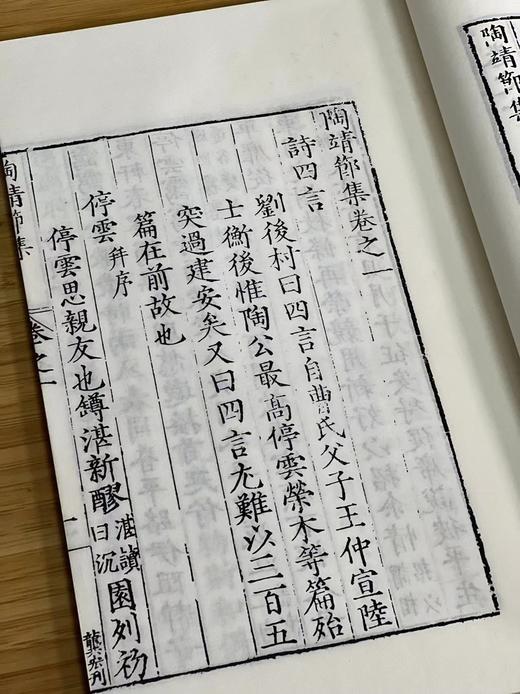 陶靖節集
陶靖節集卷之一
詩四言
劉後村曰四言自曹氏父子王仲宣陸
士衡後惟陶公最髙停雲榮木等篇殆
突過建安矣又曰四言尤難以三百五
篇在前故也
停雲 幷序
停雲思親友也罇湛新醪湛讀曰沉園列初
陶靖節集 卷之一